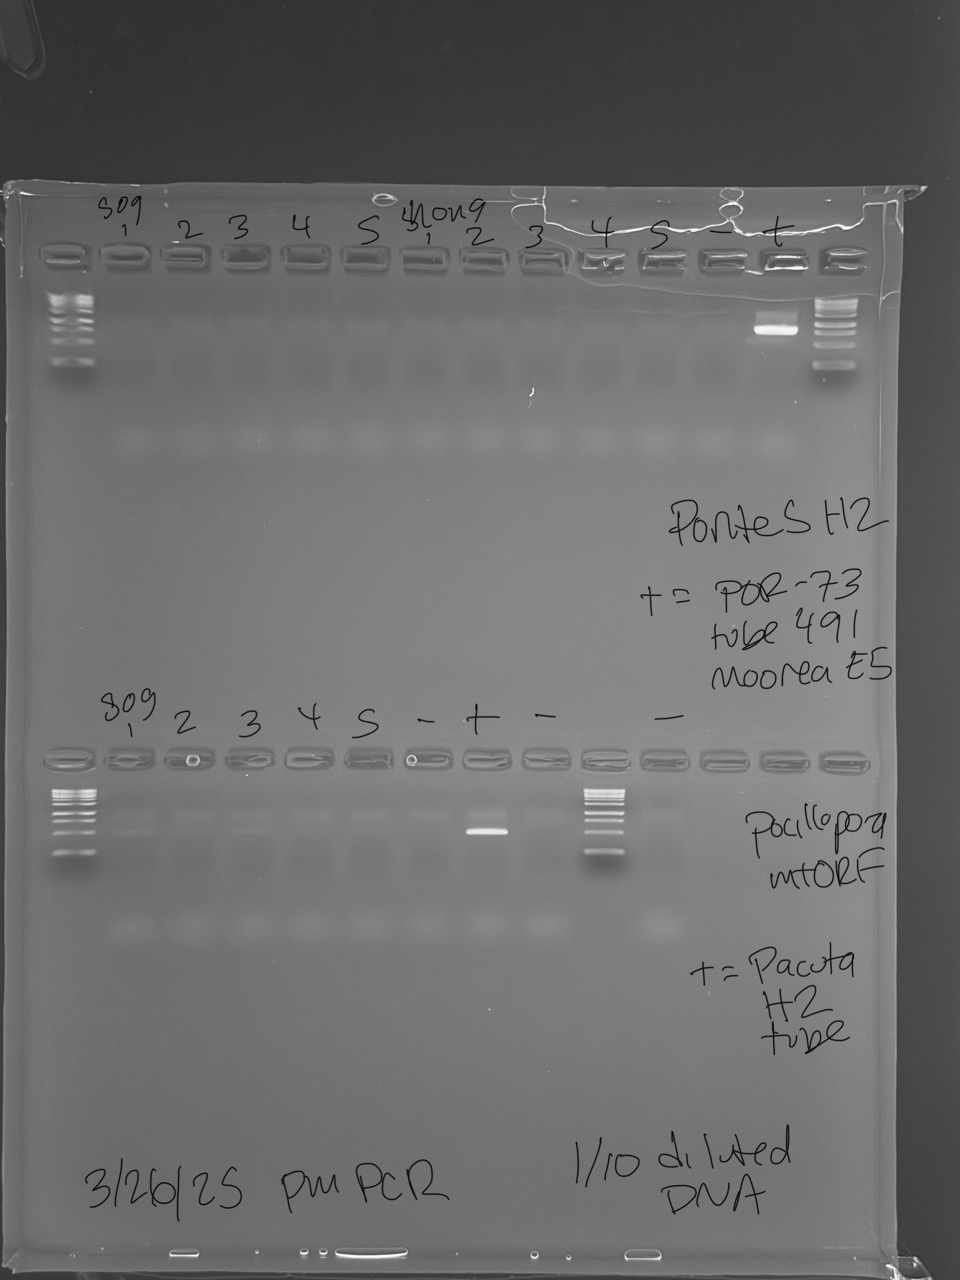 809 thong
1 2 3 4 5 1 2 3 4 5 - +
Porites H2
+ = POR-73
tube 491
Moorea E5
809
1 2 3 4 5 - + - -
Pocillopora
mtORF
+ = Pacuta
H2
tube
3/26/25 pm PCR
1/10 diluted
DNA